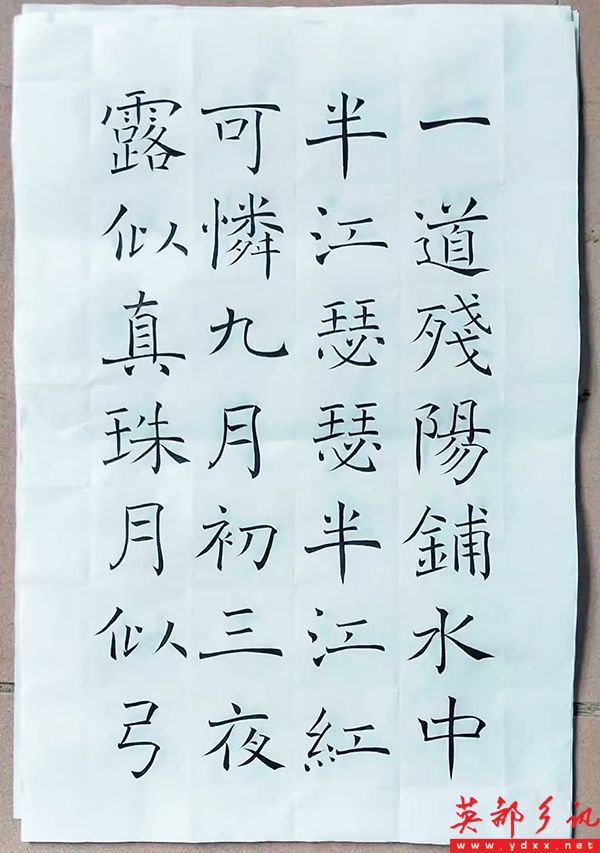 一道殘陽鋪水中
半江瑟瑟半江紅
可憐九月初三夜
露似真珠月似弓
英都乡讯
www.ydxx.net